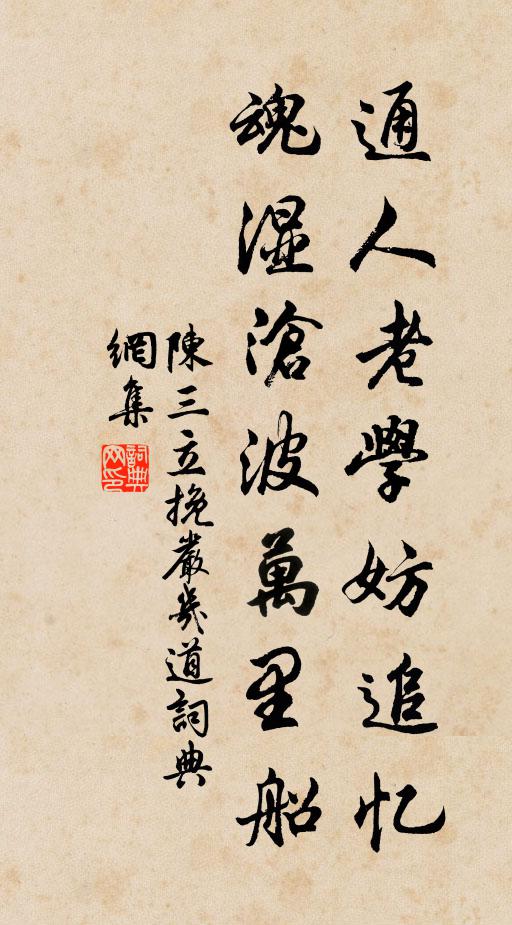 通人老學妨追忆
魂濕滄波萬里船
陳三立挽嚴幾道詞典
網集
詞典網印